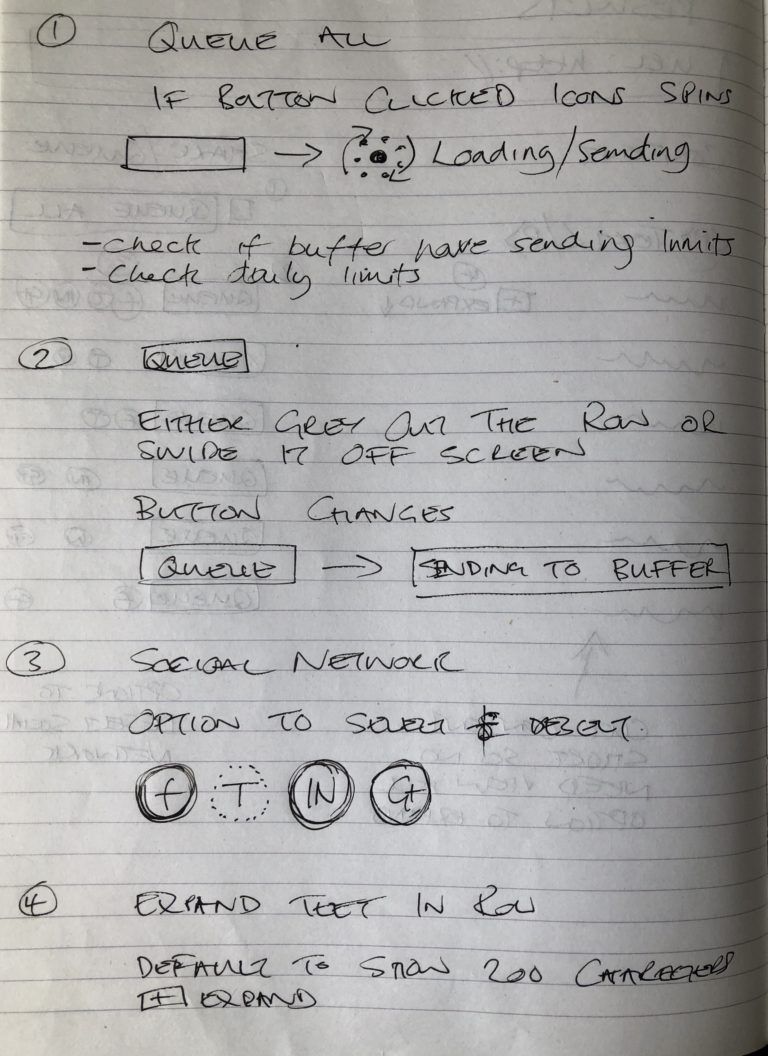 ① QUEUE ALL
IF BUTTON CLICKED ICONS SPINS
→ Loading/Sending
- check if buffer have sending limits
- check daily limits
② QUEUE
EITHER GREY OUT THE ROW OR
SWIPE IT OFF SCREEN
BUTTON CHANGES
QUEUE → SENDING TO BUFFER
③ SOCIAL NETWORK
OPTION TO SELECT & DESELECT.
f T IN G+
④ EXPAND TEXT IN ROW
DEFAULT TO SHOW 200 CHARACTERS
[+] EXPAND